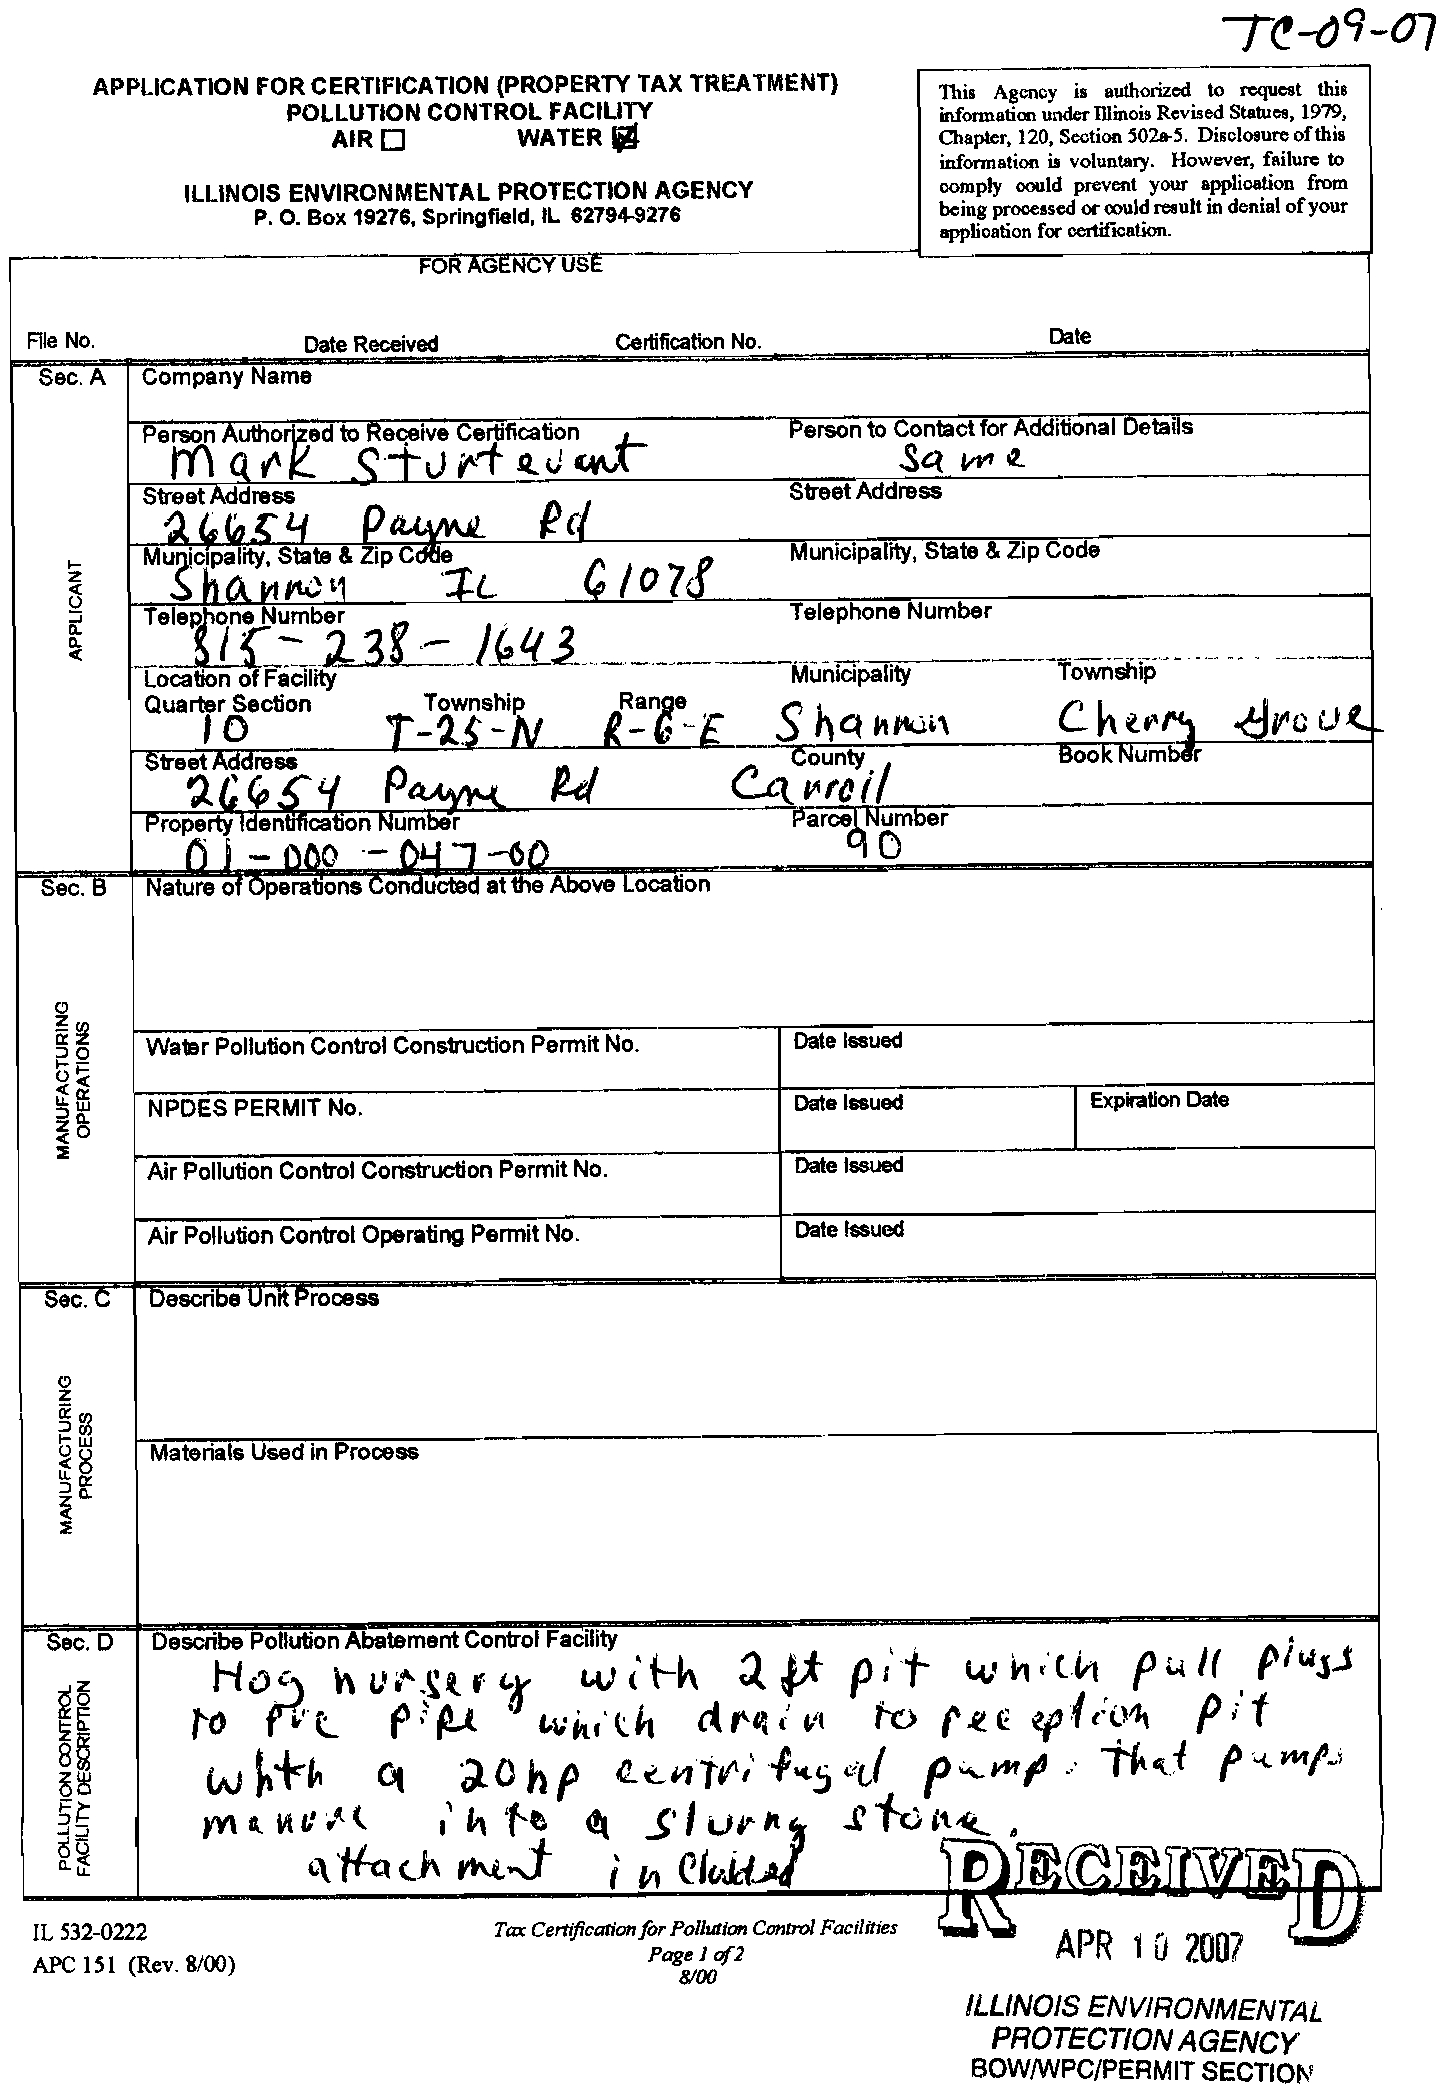 TC-09-07
APPLICATION FOR CERTIFICATION (PROPERTY TAX TREATMENT)
POLLUTION CONTROL FACILITY
AIR WATER
ILLINOIS ENVIRONMENTAL PROTECTION AGENCY
P. O. Box 19276, Springfield, IL 62794-9276
This Agency is authorized to request this
information under Illinois Revised Statues, 1979,
Chapter, 120, Section 502a-5. Disclosure of this
information is voluntary. However, failure to
comply could prevent your application from
being processed or could result in denial of your
application for certification.
FOR AGENCY USE
File No. Date Received Certification No. Date
Sec. A Company Name
APPLICANT
Person Authorized to Receive Certification Person to Contact for Additional Details
Mark Sturtevant Same
Street Address Street Address
26654 Payne Rd
Municipality, State & Zip Code Municipality, State & Zip Code
Shannon IL 61078
Telephone Number Telephone Number
815-238-1643
Location of Facility Municipality Township
Quarter Section Township Range
10 T-25-N R-6-E Shannon Cherry Grove
Street Address County Book Number
26654 Payne Rd Carroll
Property Identification Number Parcel Number
01-000-047-00 90
Sec. B Nature of Operations Conducted at the Above Location
MANUFACTURING
OPERATIONS
Water Pollution Control Construction Permit No. Date Issued
NPDES PERMIT No. Date Issued Expiration Date
Air Pollution Control Construction Permit No. Date Issued
Air Pollution Control Operating Permit No. Date Issued
Sec. C Describe Unit Process
MANUFACTURING
PROCESS
Materials Used in Process
Sec. D Describe Pollution Abatement Control Facility
POLLUTION CONTROL
FACILITY DESCRIPTION
Hog nursery with 2 ft pit which pull plugs
to pvc pipe which drain to reception pit
whth a 20hp centrifugal pump. that pumps
manure into a slurry store.
attachment included
RECEIVED
APR 10 2007
ILLINOIS ENVIRONMENTAL
PROTECTION AGENCY
BOW/WPC/PERMIT SECTION
IL 532-0222
APC 151 (Rev. 8/00)
Tax Certification for Pollution Control Facilities
Page 1 of 2
8/00